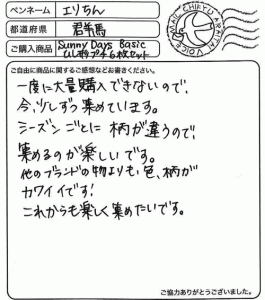 ペンネーム エリちん
都道府県 群馬
ご購入商品 Sunny Days Basic
ひし形プチ6枚セット
ご自由に商品に関するご感想などお書きください。
一度に大量購入できないので、
今、少しずつ集めています。
シーズンごとに柄が違うので
集めるのが楽しいです。
他のブランドの物よりも、色、柄が
カワイイです!
これからも楽しく集めたいです。
ご協力ありがとうございました。